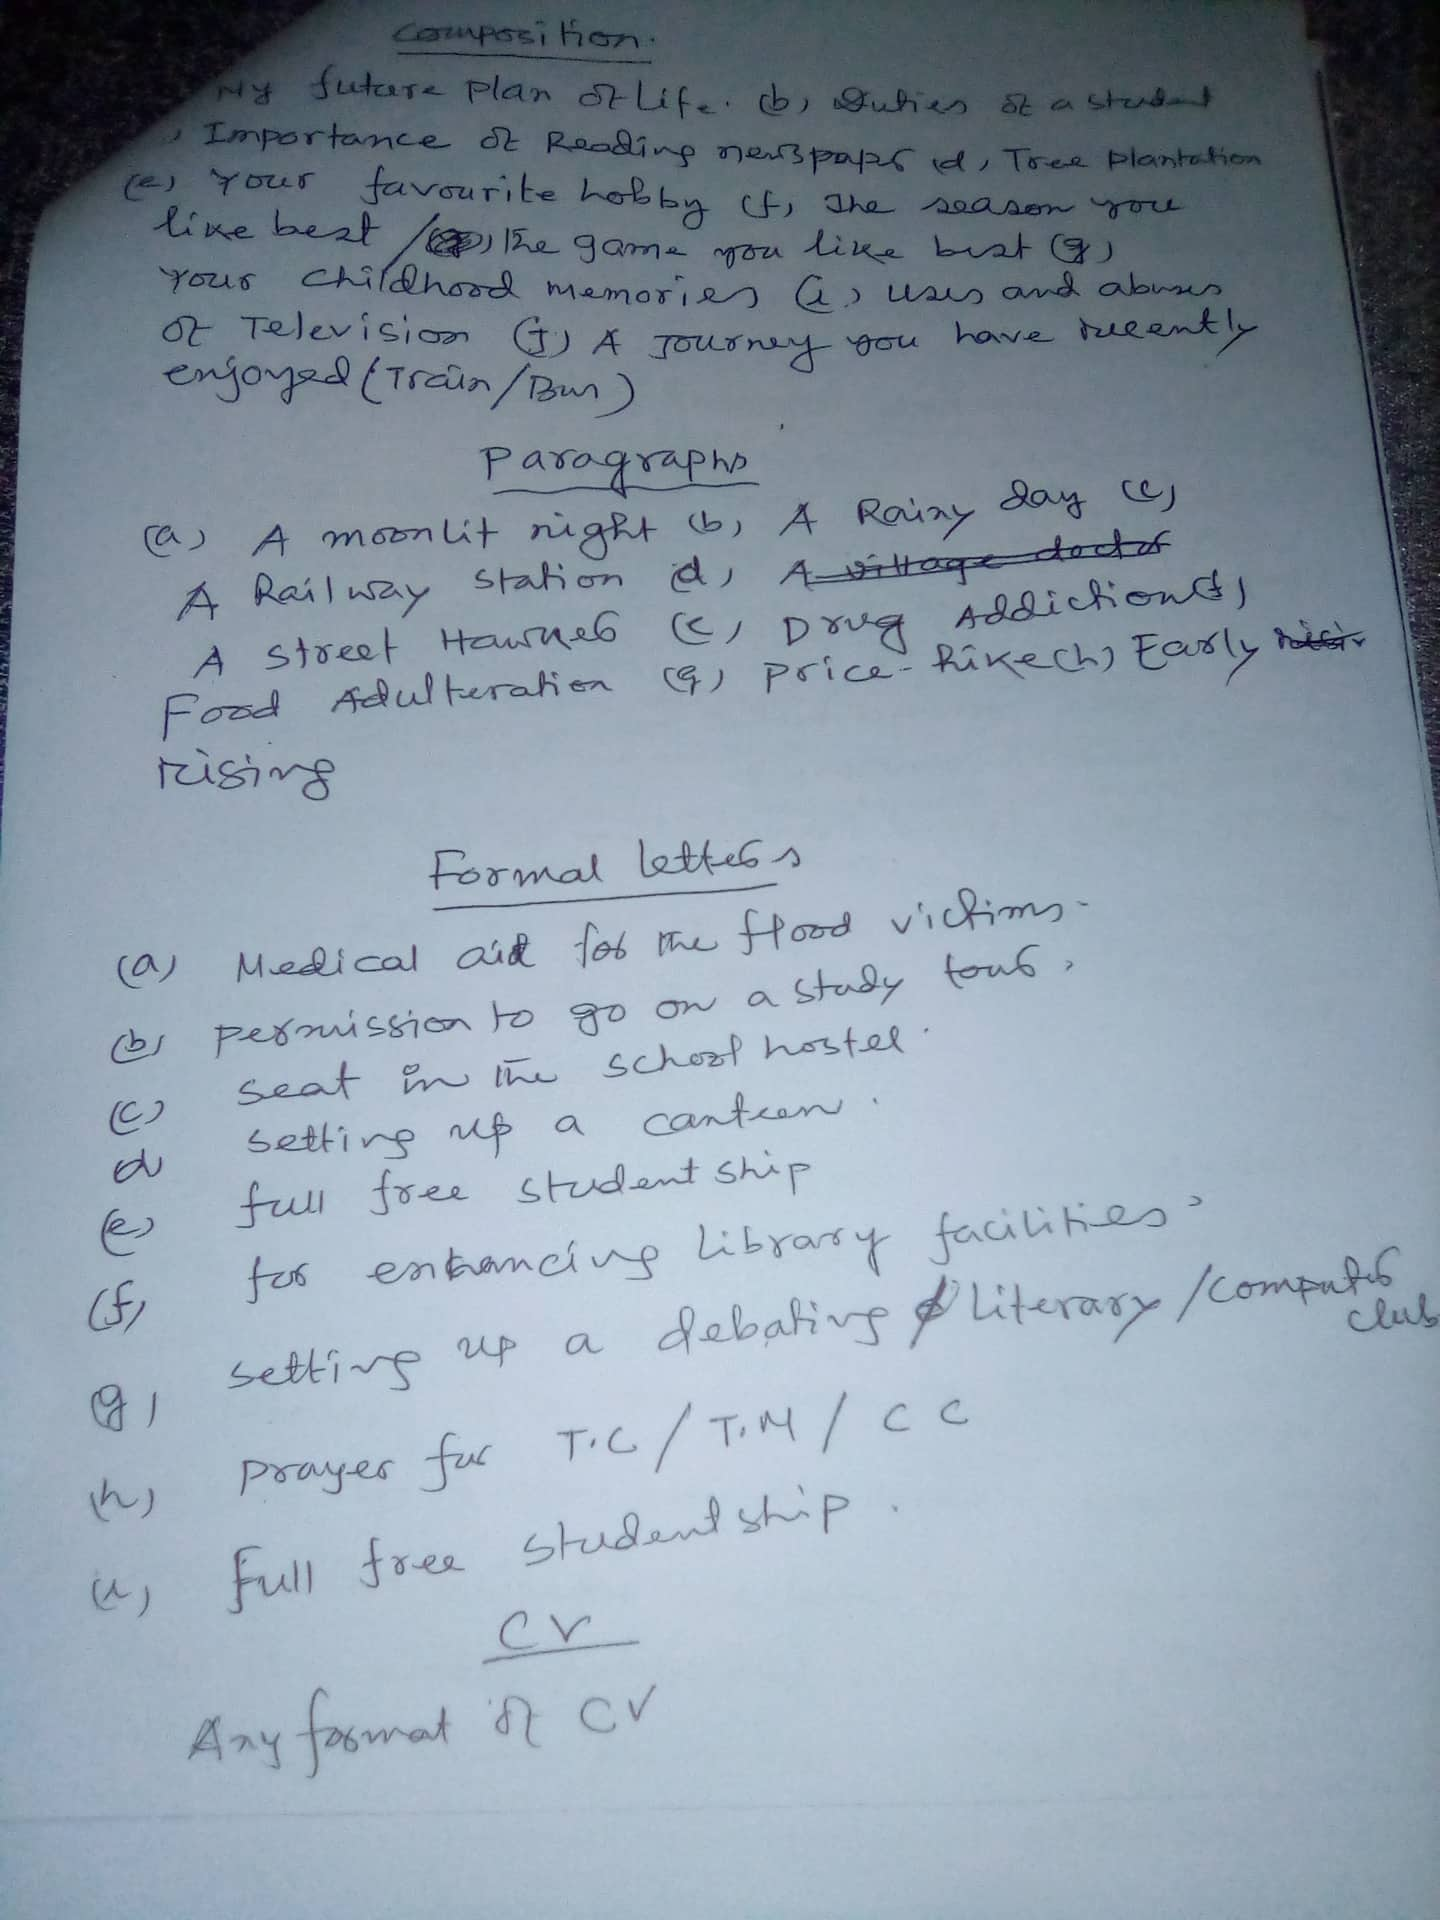 Composition.
My future plan of Life. (b) Duties of a student
, Importance of Reading newspaper (d) Tree plantation
(e) Your favourite hobby (f) The season you
like best / the game you like best (g)
Your childhood memories (i) uses and abuses
of Television (j) A Journey you have recently
enjoyed (Train/Bus)
Paragraphs
(a) A moonlit night (b) A Rainy day (c)
A Railway Station (d) A village doctor
A street Hawker (e) Drug Addiction (f)
Food Adulteration (g) price-hike (h) Early
rising
Formal letters
(a) Medical aid for the flood victims.
(b) permission to go on a study tour.
(c) seat in the school hostel.
d) setting up a canteen.
(e) full free studentship
(f) for enhancing Library facilities.
g) setting up a debating / Literary / Computer
club
(h) prayer for T.C / T.M / C C
(i) Full free studentship.
CV
Any format of CV